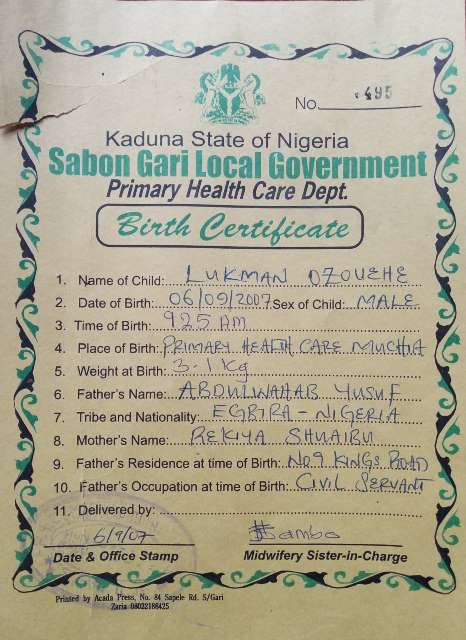 No. 495
Kaduna State of Nigeria
Sabon Gari Local Government
Primary Health Care Dept.
Birth Certificate
1. Name of Child: LUKMAN OZOVEHE
2. Date of Birth: 06/09/2007 Sex of Child: MALE
3. Time of Birth: 925 AM
4. Place of Birth: PRIMARY HEALTH CARE MUCHIA
5. Weight at Birth: 3.1 kg
6. Father's Name: ABDULWAHAB YUSUF
7. Tribe and Nationality: EGBIRA - NIGERIA
8. Mother's Name: REKIYA SHUAIBU
9. Father's Residence at time of Birth: No 9 KINGS ROAD
10. Father's Occupation at time of Birth: CIVIL SERVANT
11. Delivered by:
6/9/07
Date & Office Stamp
Midwifery Sister-in-Charge
Printed by Acada Press, No. 84 Sapele Rd. S/Gari
Zaria 08022186425